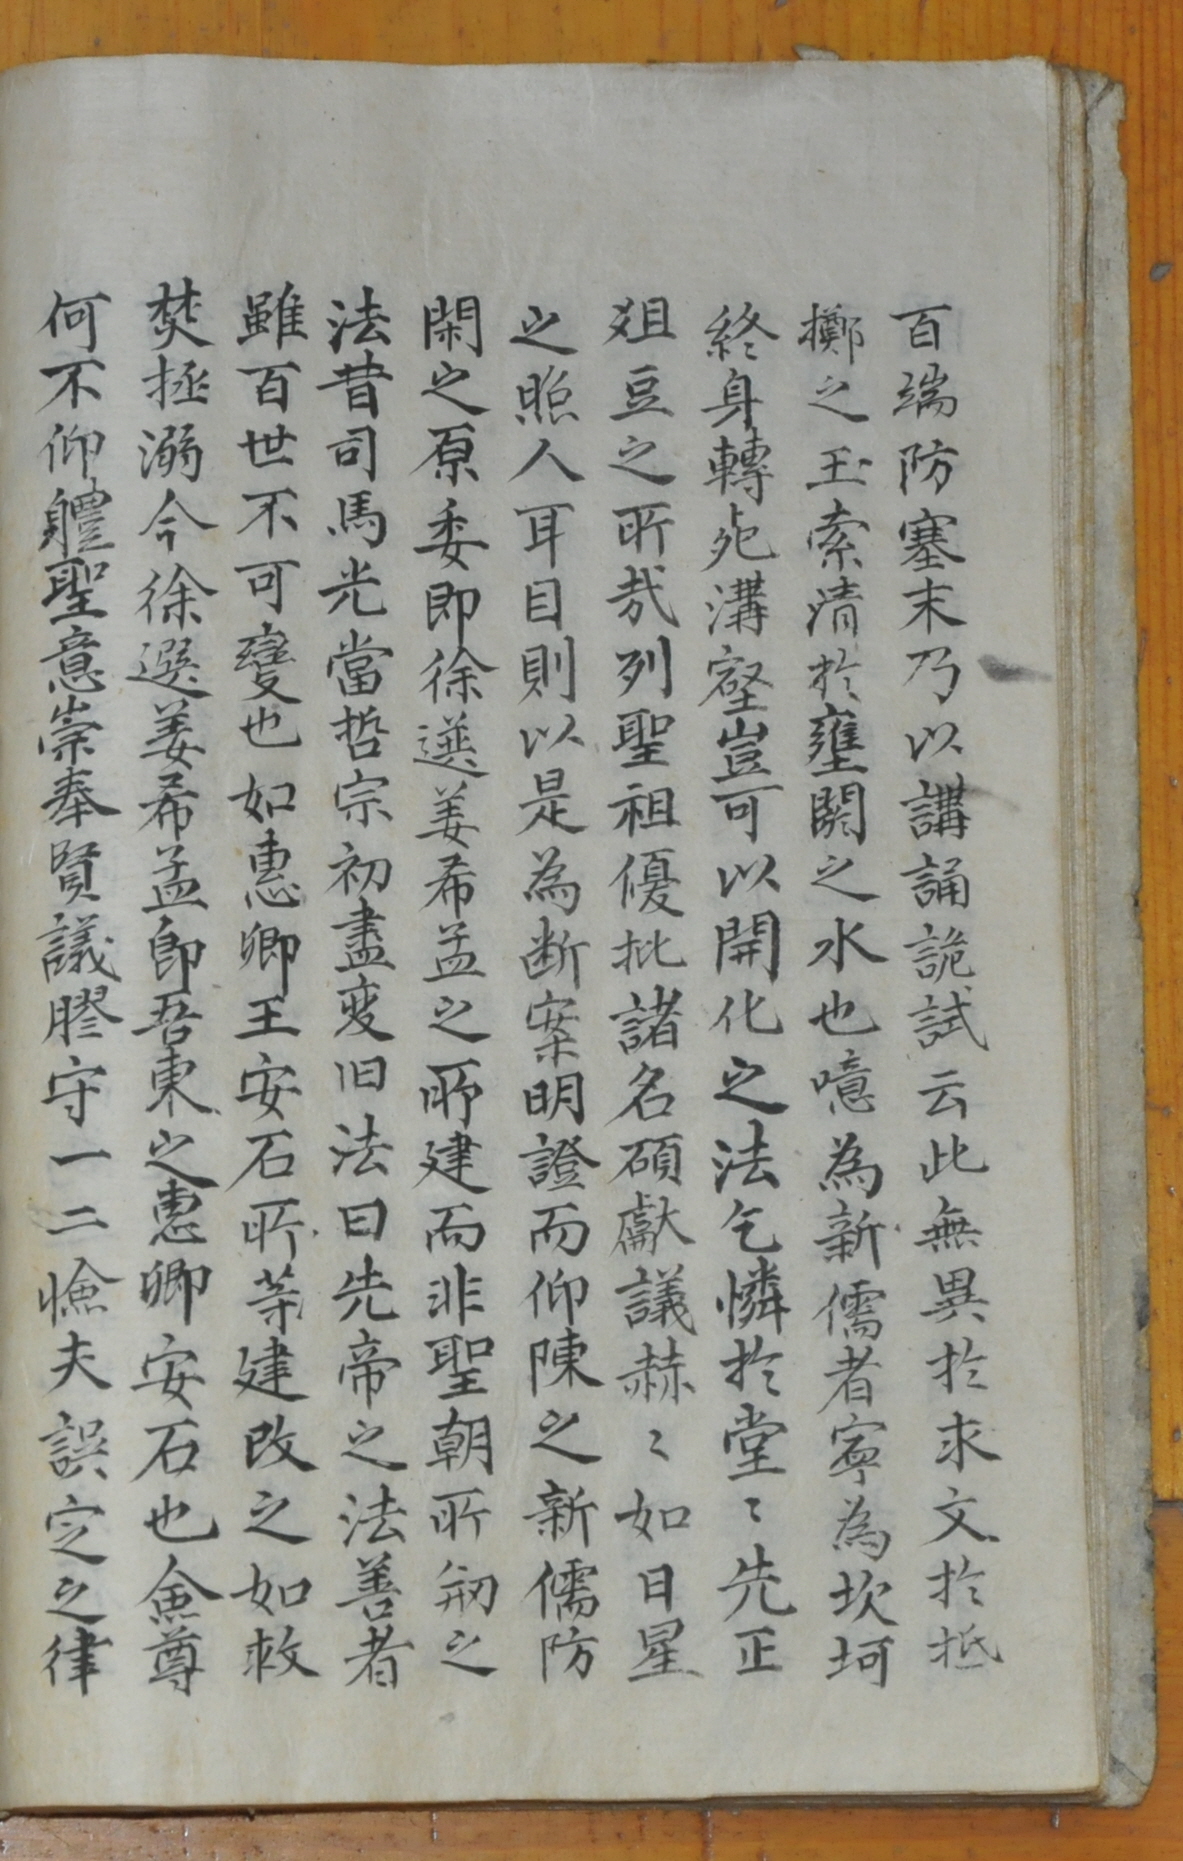 百端防塞末乃以講誦詭試云此無異於求文於抵
擲之玉索清於壅閼之水也噫為新儒者寧為坎坷
終身轉死溝壑豈可以開化之法乞憐於堂〻先正
俎豆之所哉列聖祖優批諸名碩獻議赫〻如日星
之照人耳目則以是為断案明證而仰陳之新儒防
閑之原委即徐選姜希孟之所建而非聖朝所刱之
法昔司馬光當哲宗初盡変旧法曰先帝之法善者
雖百世不可變也如惠卿王安石所等建改之如救
焚拯溺今徐選姜希孟即吾東之惠卿安石也僉尊
何不仰軆聖意崇奉賢議膠守一二憸夫誤定之律